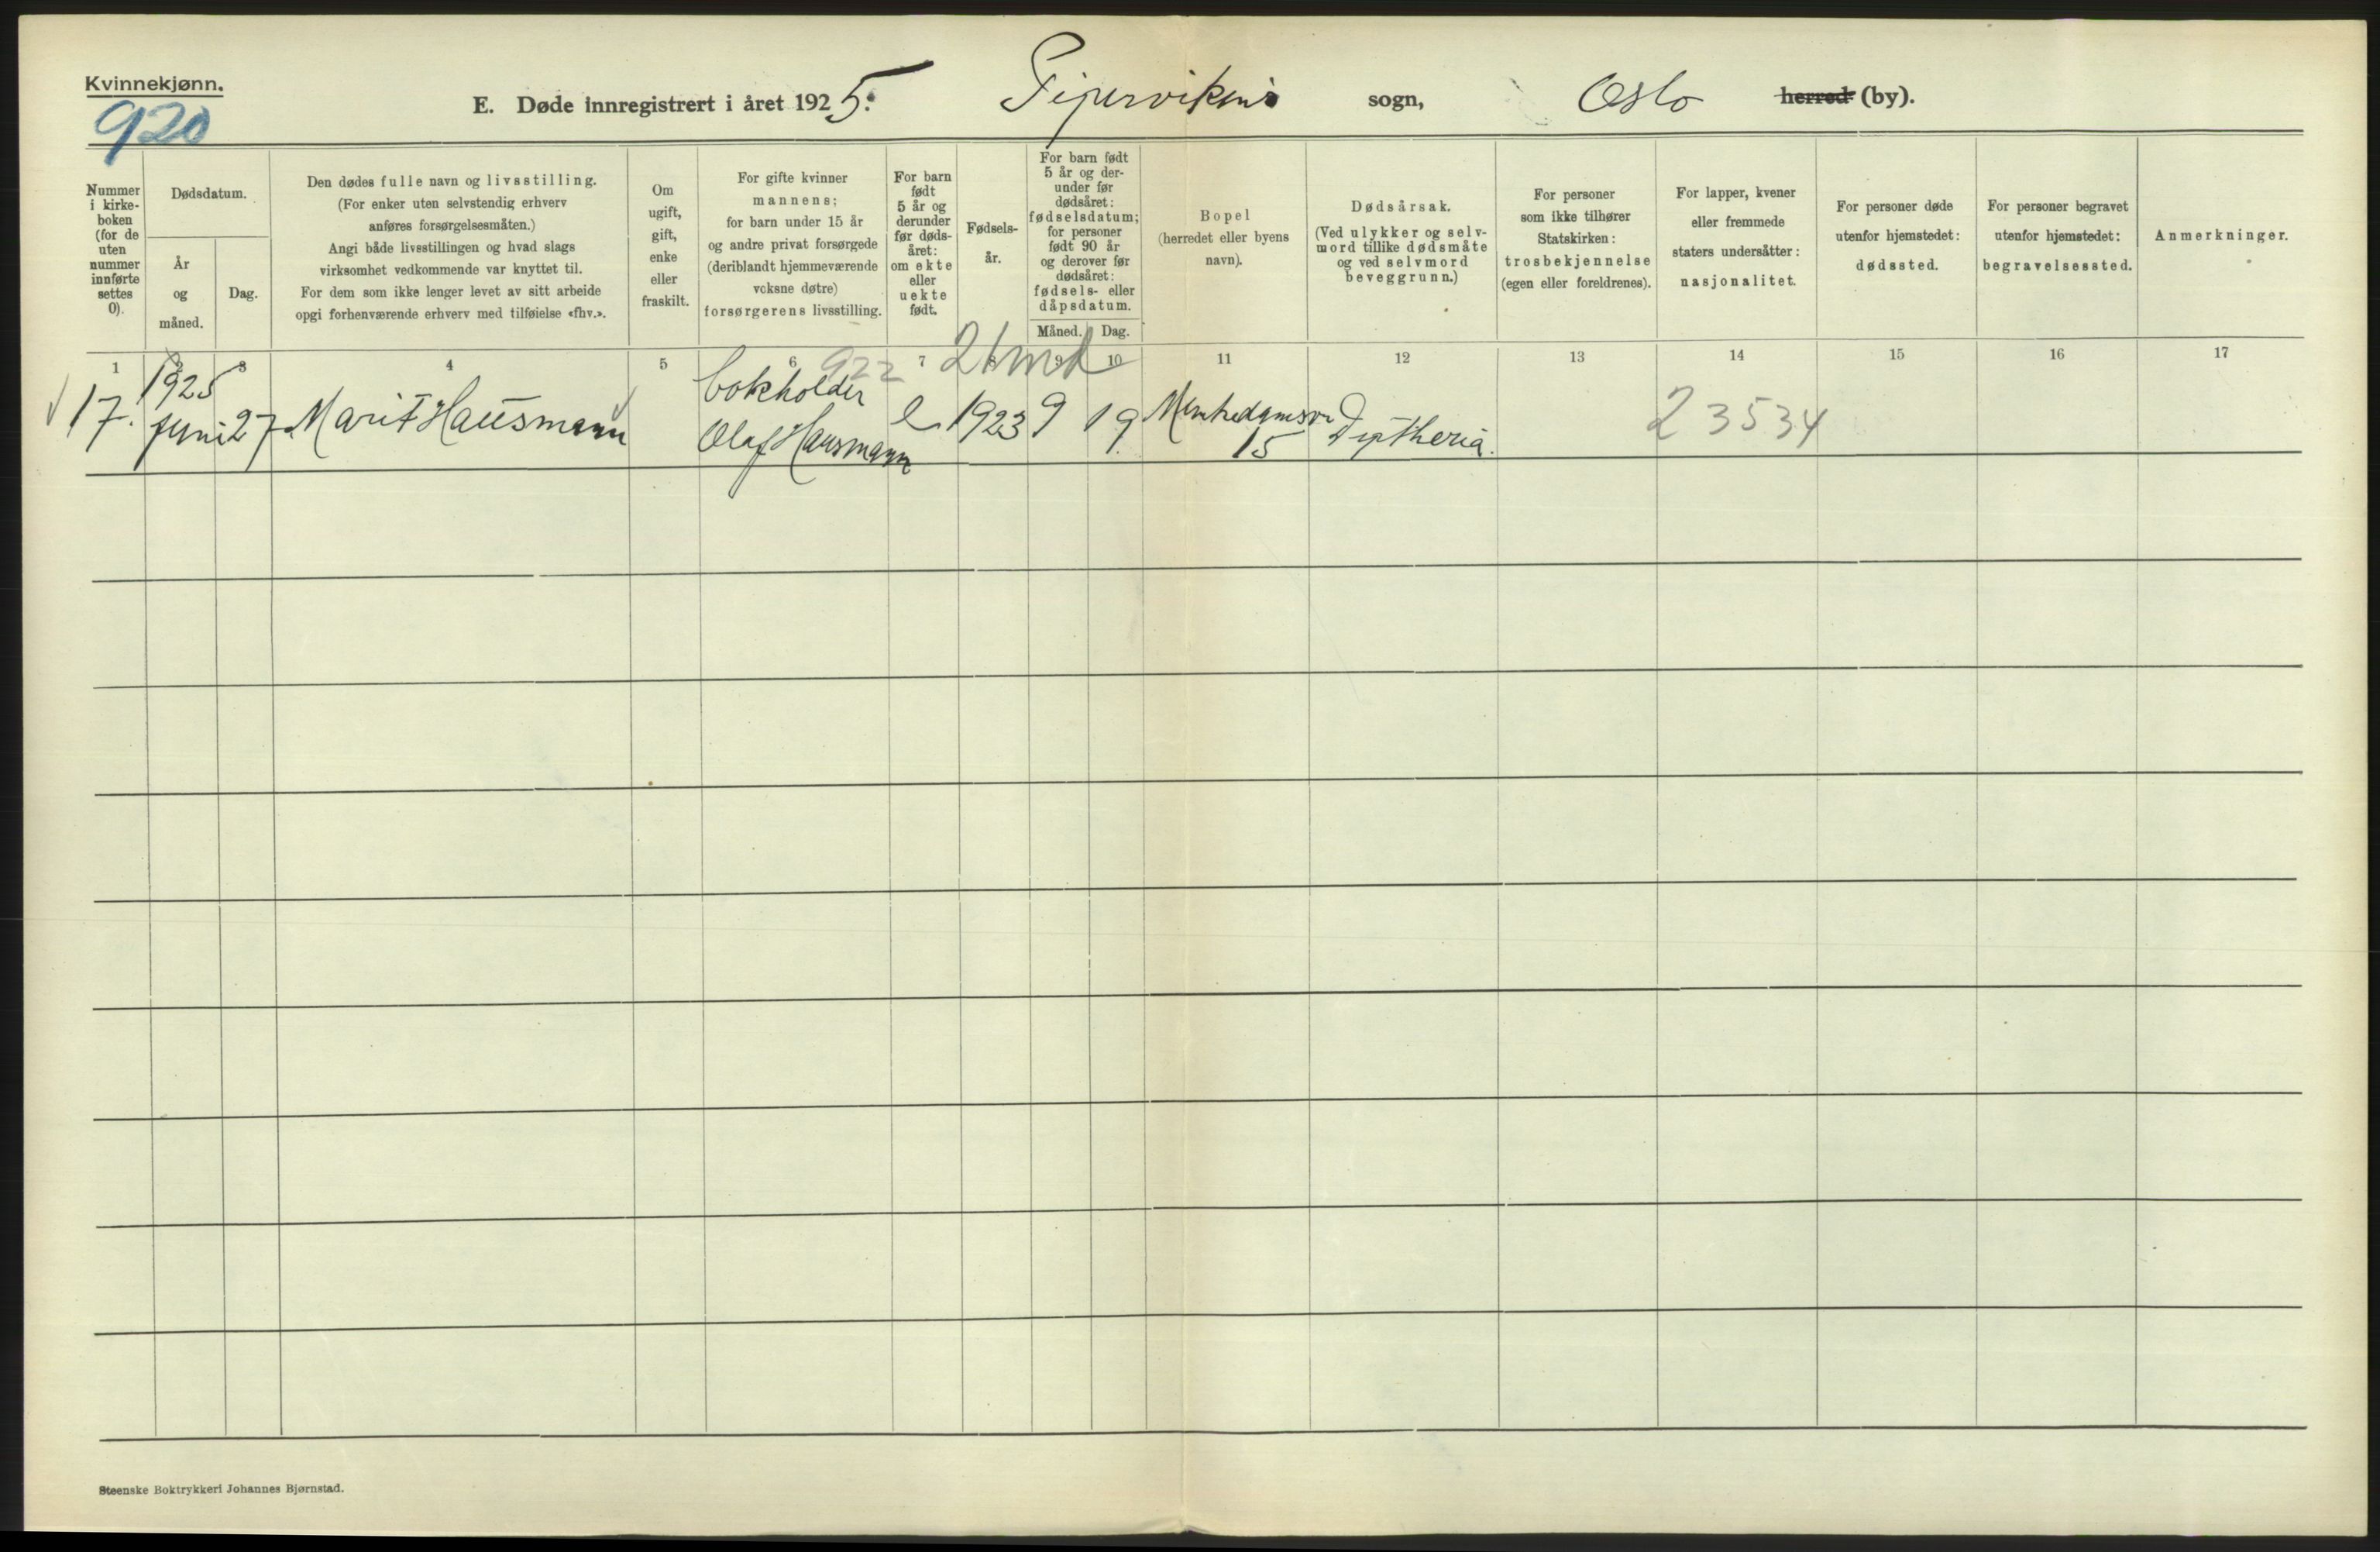 Kvinnekjønn.
920
E. Døde innregistrert i året 1925. Pipervikens sogn, Oslo herred (by).
Nummer i kirke-boken (for de uten nummer innførte settes 0).
Dødsdatum.
År og måned.
Dag.
Den dødes fulle navn og livsstilling.
(For enker uten selvstendig erhverv
anføres forsørgelsesmåten.)
Angi både livsstillingen og hvad slags
virksomhet vedkommende var knyttet til.
For dem som ikke lenger levet av sitt arbeide
opgi forhenværende erhverv med tilføielse «fhv.».
Om
ugift,
gift,
enke
eller
fraskilt.
For gifte kvinner
mannens;
for barn under 15 år
og andre privat forsørgede
(deriblandt hjemmeværende
voksne døtre)
forsørgerens livsstilling.
For barn
født
5 år og
derunder
før døds-
året:
om ekte
eller
uekte
født.
Fødsels-
år.
For barn født
5 år og der-
under før
dødsåret:
fødselsdatum;
for personer
født 90 år
og derover før
dødsåret:
fødsels- eller
dåpsdatum.
Måned. Dag.
Bopel
(herredet eller byens
navn).
Dødsårsak.
(Ved ulykker og selv-
mord tillike dødsmåte
og ved selvmord
beveggrunn.)
For personer
som ikke tilhører
Statskirken:
trosbekjennelse
(egen eller foreldrenes).
For lapper, kvener
eller fremmede
staters undersåtter:
nasjonalitet.
For personer døde
utenfor hjemstedet:
dødssted.
For personer begravet
utenfor hjemstedet:
begravelsessted.
Anmerkninger.
1 2 3 4 5 6 7 8 9 10 11 12 13 14 15 16 17
922 21 md
1925 bokholder
17. juni 27. Marit Hausmann Olaf Hausmann e 1923 9 19. Munkedamsv. 15 Diptheria. 23534
Steenske Boktrykkeri Johannes Bjørnstad.